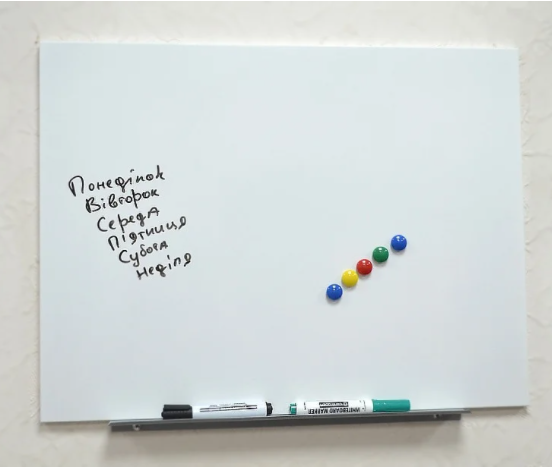 Понеділок
Вівторок
Середа
П'ятниця
Субота
Неділя
WHITEBOARD MARKER